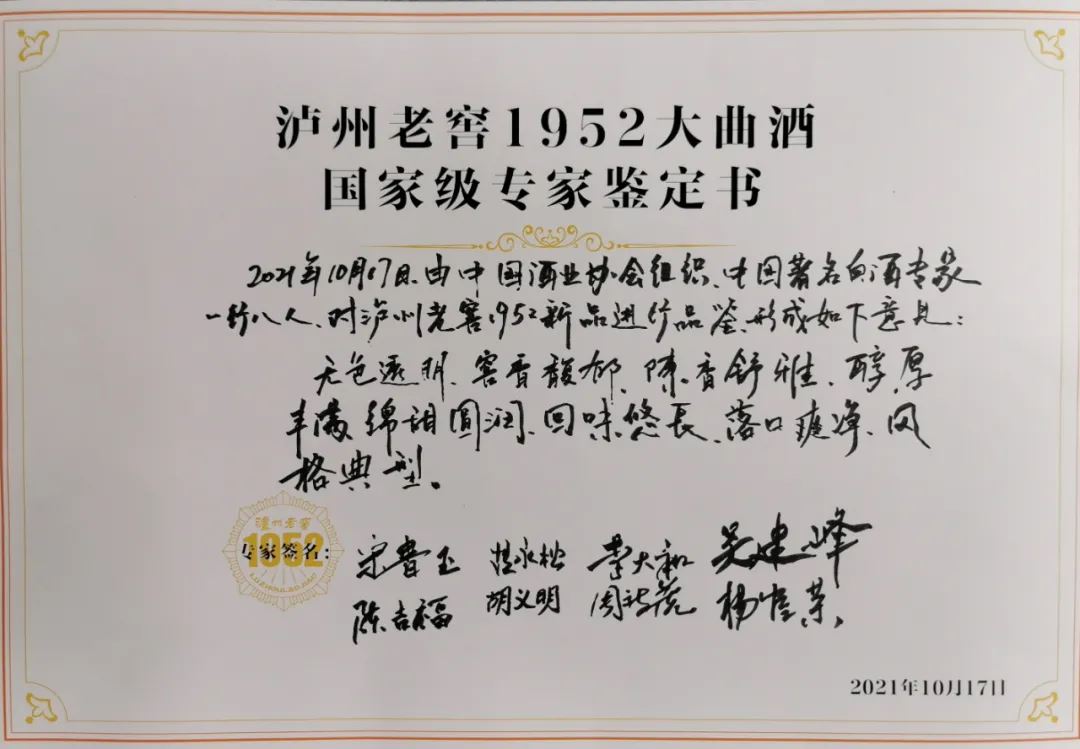 泸州老窖1952大曲酒
国家级专家鉴定书
2021年10月17日.由中国酒业协会组织、中国著名白酒专家
一行八人、对泸州老窖1952新品进行品鉴,形成如下意见:
无色透明、窖香馥郁、陈香舒雅、醇厚
丰满、绵甜圆润、回味悠长、落口爽净、风
格典型。
泸州老窖
1952
LUZHOULAOJIAO
专家签名:
李大和 吴建峰
陈吉福 胡义明
2021年10月17日